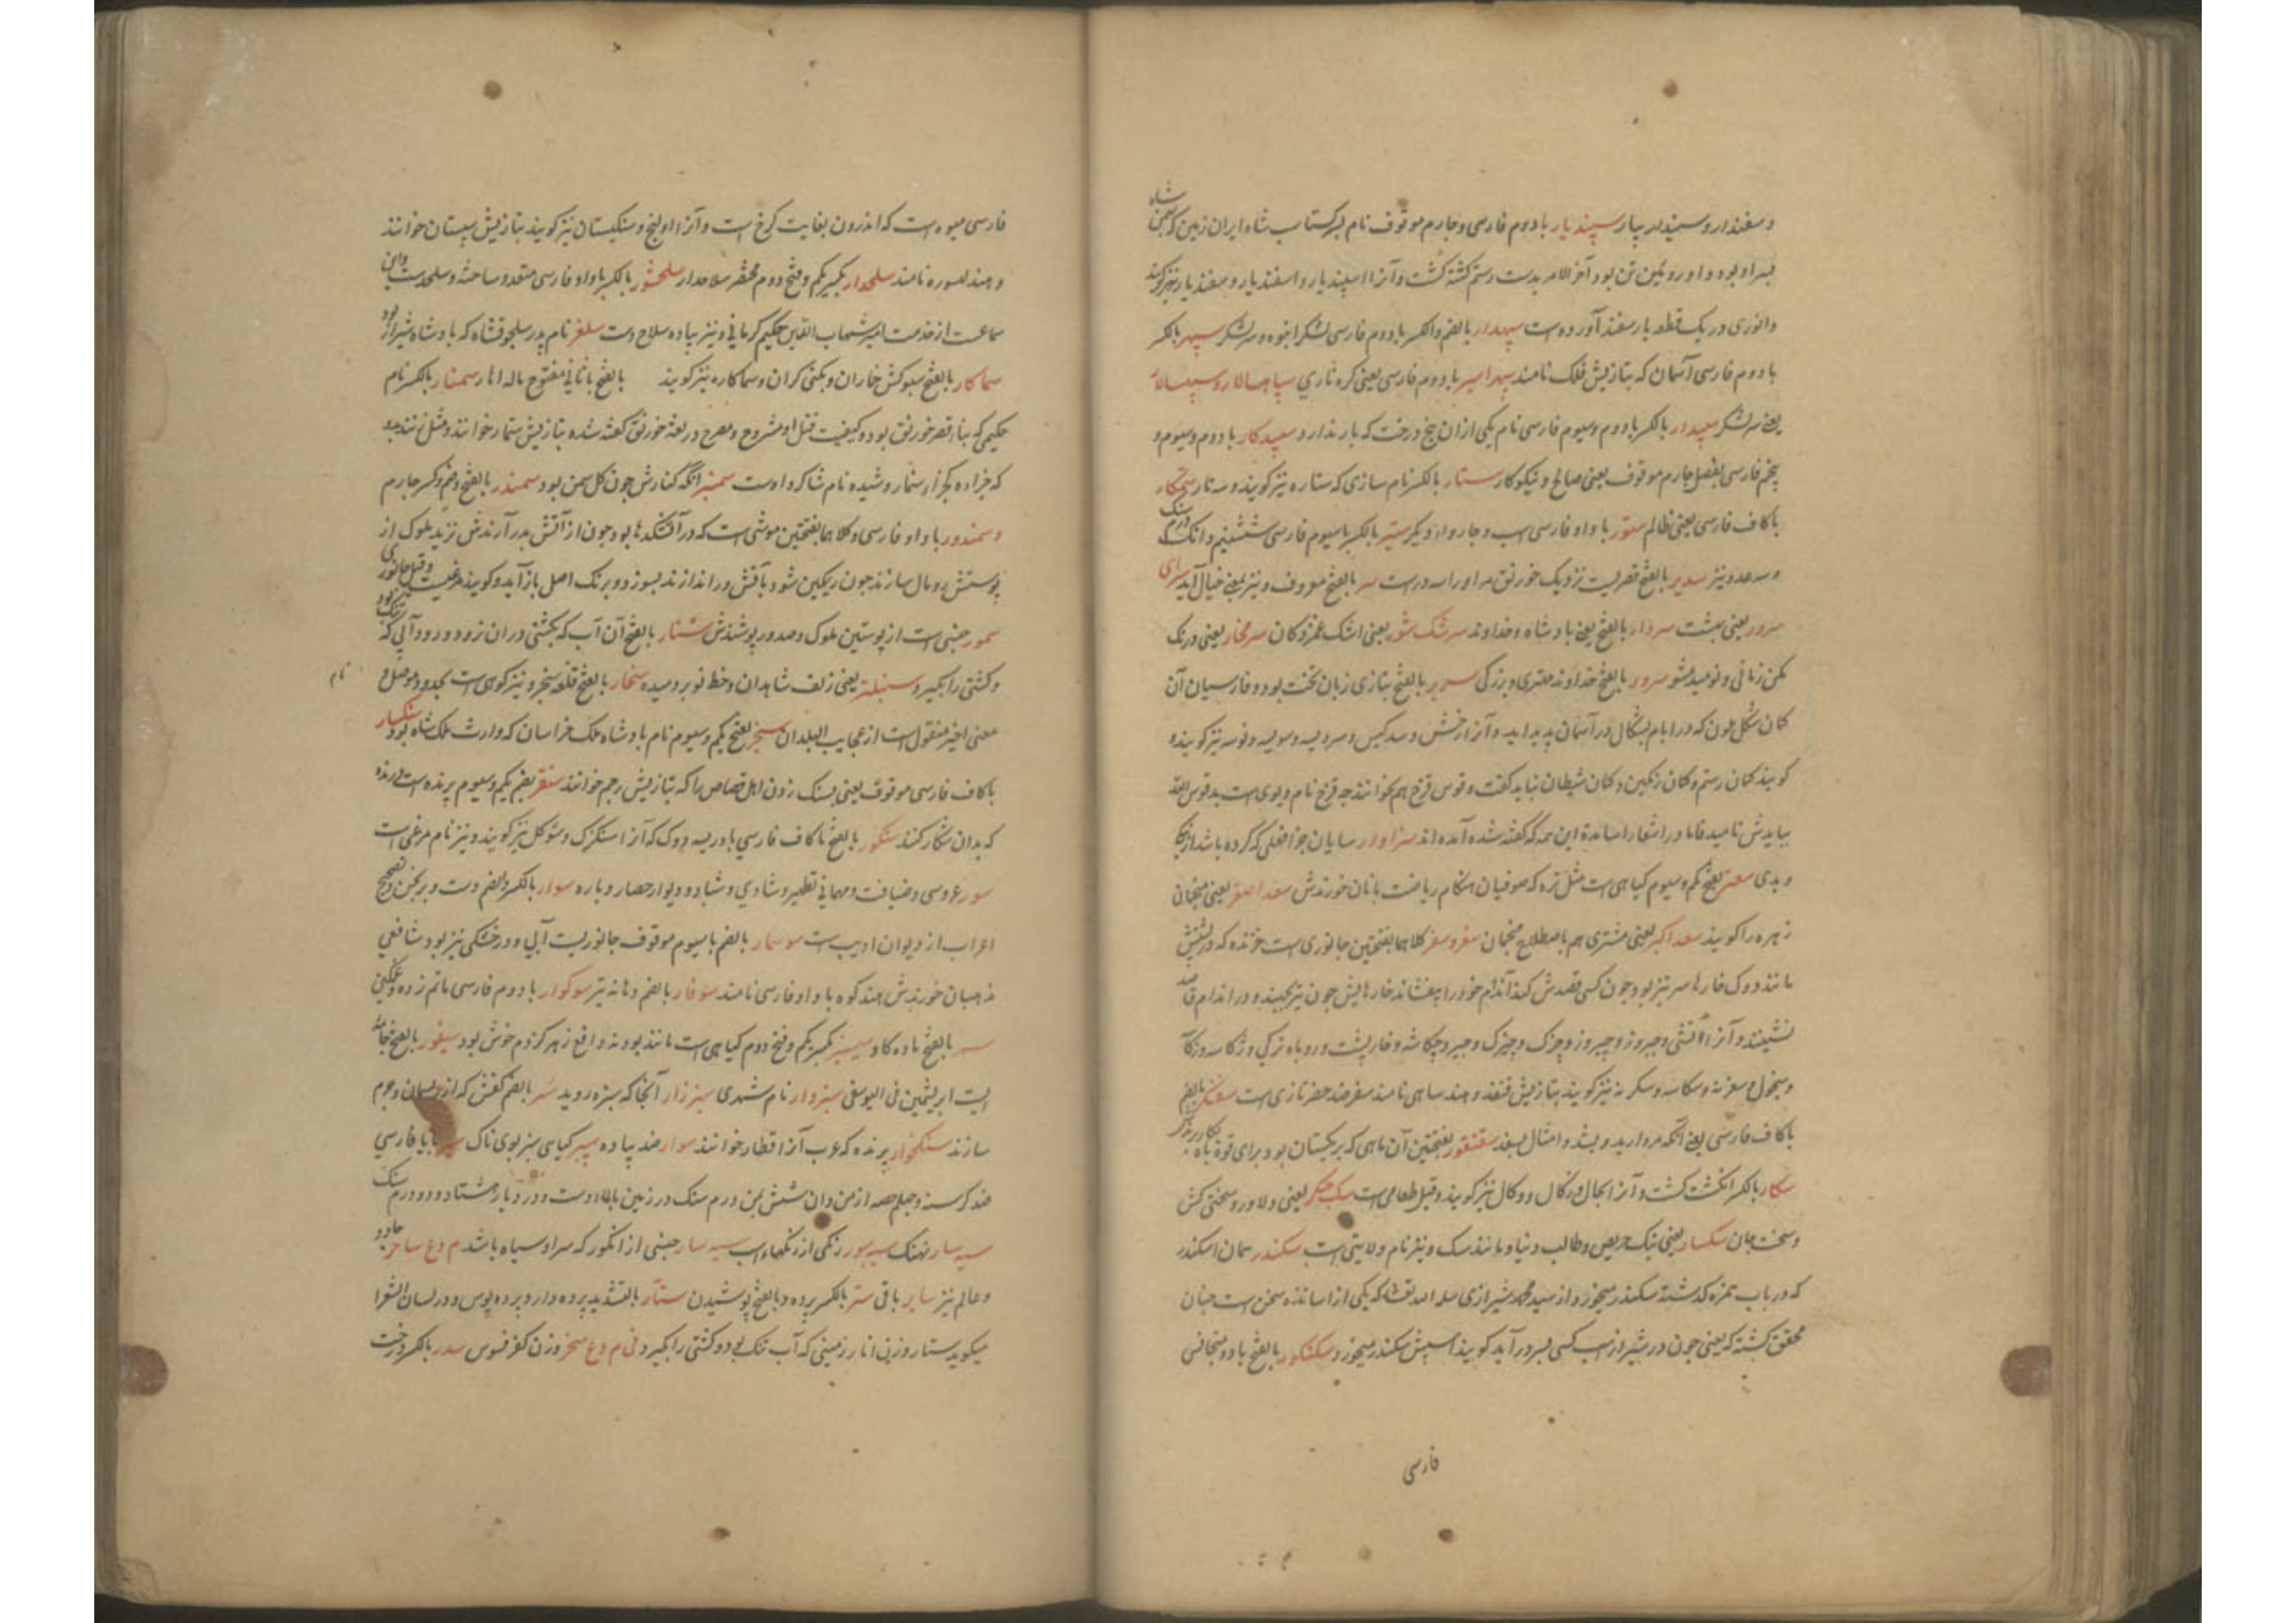 و سفندار و سپیدار سپندیار با دوم فارسی و چارم موقوف نام پسر کشتاسب شاه ایران زمین که بهمن شاه
پسر او بود و او رویین تن بود آخر الامر بدست رستم کشته کشت و آنرا اسپندیار و اسفندیار و سفندیار نیز کویند
و انوری در یک قطعه یار سفند آورده است سپهدار بالضم والکسر با دوم فارسی لشکر انبوه و سر لشکر سپهر بالکسر
با دوم فارسی آسمان که بتازیش فلک نامند سپهر اسیر با دوم فارسی یعنی کره ناری سپاهسالار و سپهسالار
یعنی سر لشکر سپیدار بالکسر با دوم و سیوم فارسی نام یکی از ان پنج درخت که بار ندارد سپیدکار با دوم و سیوم و
پنجم فارسی بفصل چارم موقوف یعنی صالح و نیکوکار ستار بالکسر نام سازی که ستاره نیز کویند و سه تار ستمکار
با کاف فارسی یعنی ظالم ستور با واو فارسی اسب و چاروا و دیکر ستیر بالکسر با سیوم فارسی شش نیم درم سنک
و نیز سدیر بالفتح قصریست نزدیک خورنق سر بالفتح معروف و نیز بمعنی خیال آید سرای
سرور یعنی بهشت سردار بالفتح یعنی پادشاه و خداوند سرشک شور یعنی اشک غمزدکان سرمخار یعنی درنک
مکن زمانی و نومید مشو سرور بالفتح خداوند مهتری و بزرکی سریر بالفتح بتازی زبان تخت بود و فارسیان آن
کمان شکل لون که در ایام بشکال در آسمان پدید آید و آنرا رخش و سدکیس و سرویسه و سویسه و نوسه نیز کویند و
کویند کمان رستم و کمان رنکین و کمان شیطان نباید کفت و قوس قزح هم نخوانند چه قزح نام دیوی است بد قوس الله
ببایدش نامید فاما در اشعار اساتذه این همه که کفته شده آمده اند سزاوار سایان جزا فعلی که کرده باشد از نیکی
و بدی سعتر بفتح یکم و سیوم کیاهی است مثل تره که صوفیان هنکام ریاضت با نان خورندش سعد اصغر یعنی منجمان
زهره را کویند سعد اکبر یعنی مشتری هم باصطلاح منجمان سغر و سغر کلاهما بفتحتین جانوری است خزنده که در پشتش
مانند دوک خارها سر تیز بود چون کسی قصدش کند اندام خود را بیفشاند خارهایش چون تیر بجهند و در اندام قاصد
نشینند و آنرا
و سیخول و سغرنه و سکاسه و سکرنه نیز کویند بتازیش قنفذ و هند ساهی نامند سفر ضد حضر تازی است
با کاف فارسی یعنی آنکه مروارید و بشد و امثال بسفد سقنقور بفتحتین آن ماهی که بریکستان بود برای قوة باه بکار برند
سکار بالکسر انکشت کشت و آنرا زکال و وکال نیز کویند و قیل طعامی است سک جکر یعنی دلاور و سختی کش
و سخت جان سکسار یعنی نیک حریص و طالب دنیا و مانند سک و نیز نام ولایتی است سکندر همان اسکندر
که در باب همزه کذشته سکندر میخورد و از سید محمد شیرازی سلمه الله تعالی که یکی از اساتذه سخن است چنان
محقق کشته که یعنی چون در شیراز اسب کسی بسر در آید کویند اسپش سکندر میخورد سکنکور بالفتح با دو بنجانس
فارسی
فارسی میوه است که اندرون بغایت کرخ است و آنرا اولنج و سنکیستان نیز کویند بتازیش سپستان خوانند
و هند لسوره نامند سلحدار بکسر یکم و فتح دوم مختصر سلاحدار سلحشور بالکسر با واو فارسی مستعد و ساخته و سلحدست و این
سماعت از خدمت امیر شهاب الدین حکیم کرمانی و نیز پیاده سلاح دست سلغر نام پدر سلجوقشاه که پادشاه شیراز بود
سماکار بالفتح سبوکش خماران و بکنی کران و سماکاره نیز کویند بالفتح با ثانی مفتوح ماله انار سمنار بالکسر نام
حکیمی که بناء قصر خورنق بود و کیفیت قتل او مشروح و مصرح در لغة خورنق کفته شده بتازیش سنمار خوانند و مثل زنند
که جزاه جزاء سنمار و شیده نام شاکرد اوست سمنبر آنکه کنارش چون کل سمن بود سمندر بالفتح و ضم و کسر چارم
و سمندور با واو فارسی و کلاهما بفتحتین موشی است که در آتشکدها بود چون از آتش بدر آرندش نزید ملوک از
پوستش رومال سازند چون ریمکین شود بآتش در اندازند بسوزد و برنک اصل باز آید و کویند مرغیست و قیل جانوری
سمور جنسی است از پوستین ملوک و صدور پوشندش شنار بالفتح آن آب که بکشتی در ان نرود و رود آبی که تنک بود
و کشتی را بکیرد سنبلتر یعنی زلف شاهدان و خط نو بر دمیده سنجار بالفتح قلعه سنجر و نیز کوهی است بحدود موصل و نام
معنی اخیر منقول است از عجایب البلدان سنجر بفتح یکم و سیوم نام پادشاه ملک خراسان که وارث ملک شاه بود سنکسار
با کاف فارسی موقوف یعنی بسنک زدن اهل قصاص را که بتازیش رجم خوانند سنقر بضم یکم و سیوم پرنده است درنده
که بدان شکار کنند سنکور بالفتح با کاف فارسی بادریسه دوک که آنرا سنکرک و ستوکل نیز کویند و نیز نام مرغی است
سور عروسی و ضیافت و مهمانی تطهیر و شادی و شباد و دیوار حصار و باره سوار بالکسر والضم دست و برنجن و تصحیح
اعراب از دیوان ادیب است سوسمار بالضم با سیوم موقوف جانوریست آبی و در خشکی نیز بود شافعی
مذهبان خورندش هند کوه با واو فارسی نامند سوفار بالضم دهانه تیر سوکوار با دوم فارسی ماتم زده و غمکین
سر بالفتح ماده کاو سیسنبر بکسر یکم و فتح دوم کیاهی است مانند بودنه دافع زهر کژدم خوش بود سیفور بالفتح جامه
ایست ابریشمین فی الیوسفی سبزوار نام شهری سبززار آنجا که سبزه روید سر بالضم کفش که از ریسمان و چرم
سازند سنکخوار پرنده که عرب آنرا قطار خوانند سوار ضد پیاده سیر کیاهی سبز بوی ناک سیر با یا فارسی
ضد کرسنه و چهلم حصه از من و ان شش من درم سنک در زمین بالاء دست و در دیار هشتاد و دو درم سنک
سیه سار نهنک سیه بور رنکی از رنکهاء اسب سیه سار جنسی از انکور که سر او سیاه باشد م دع ساحر جادو
و عالم نیز سایر باقی ستر بالکسر پرده و بالفتح پوشیدن ستار بالتشدید پرده دار و پرده پوس و در لسان الشعرا
میکوید ستار وزن انار زمینی که آب تنک بود و کشتی را بکیرد فی م دع سخر وزن کفر فسوس سدر بالکسر درخت